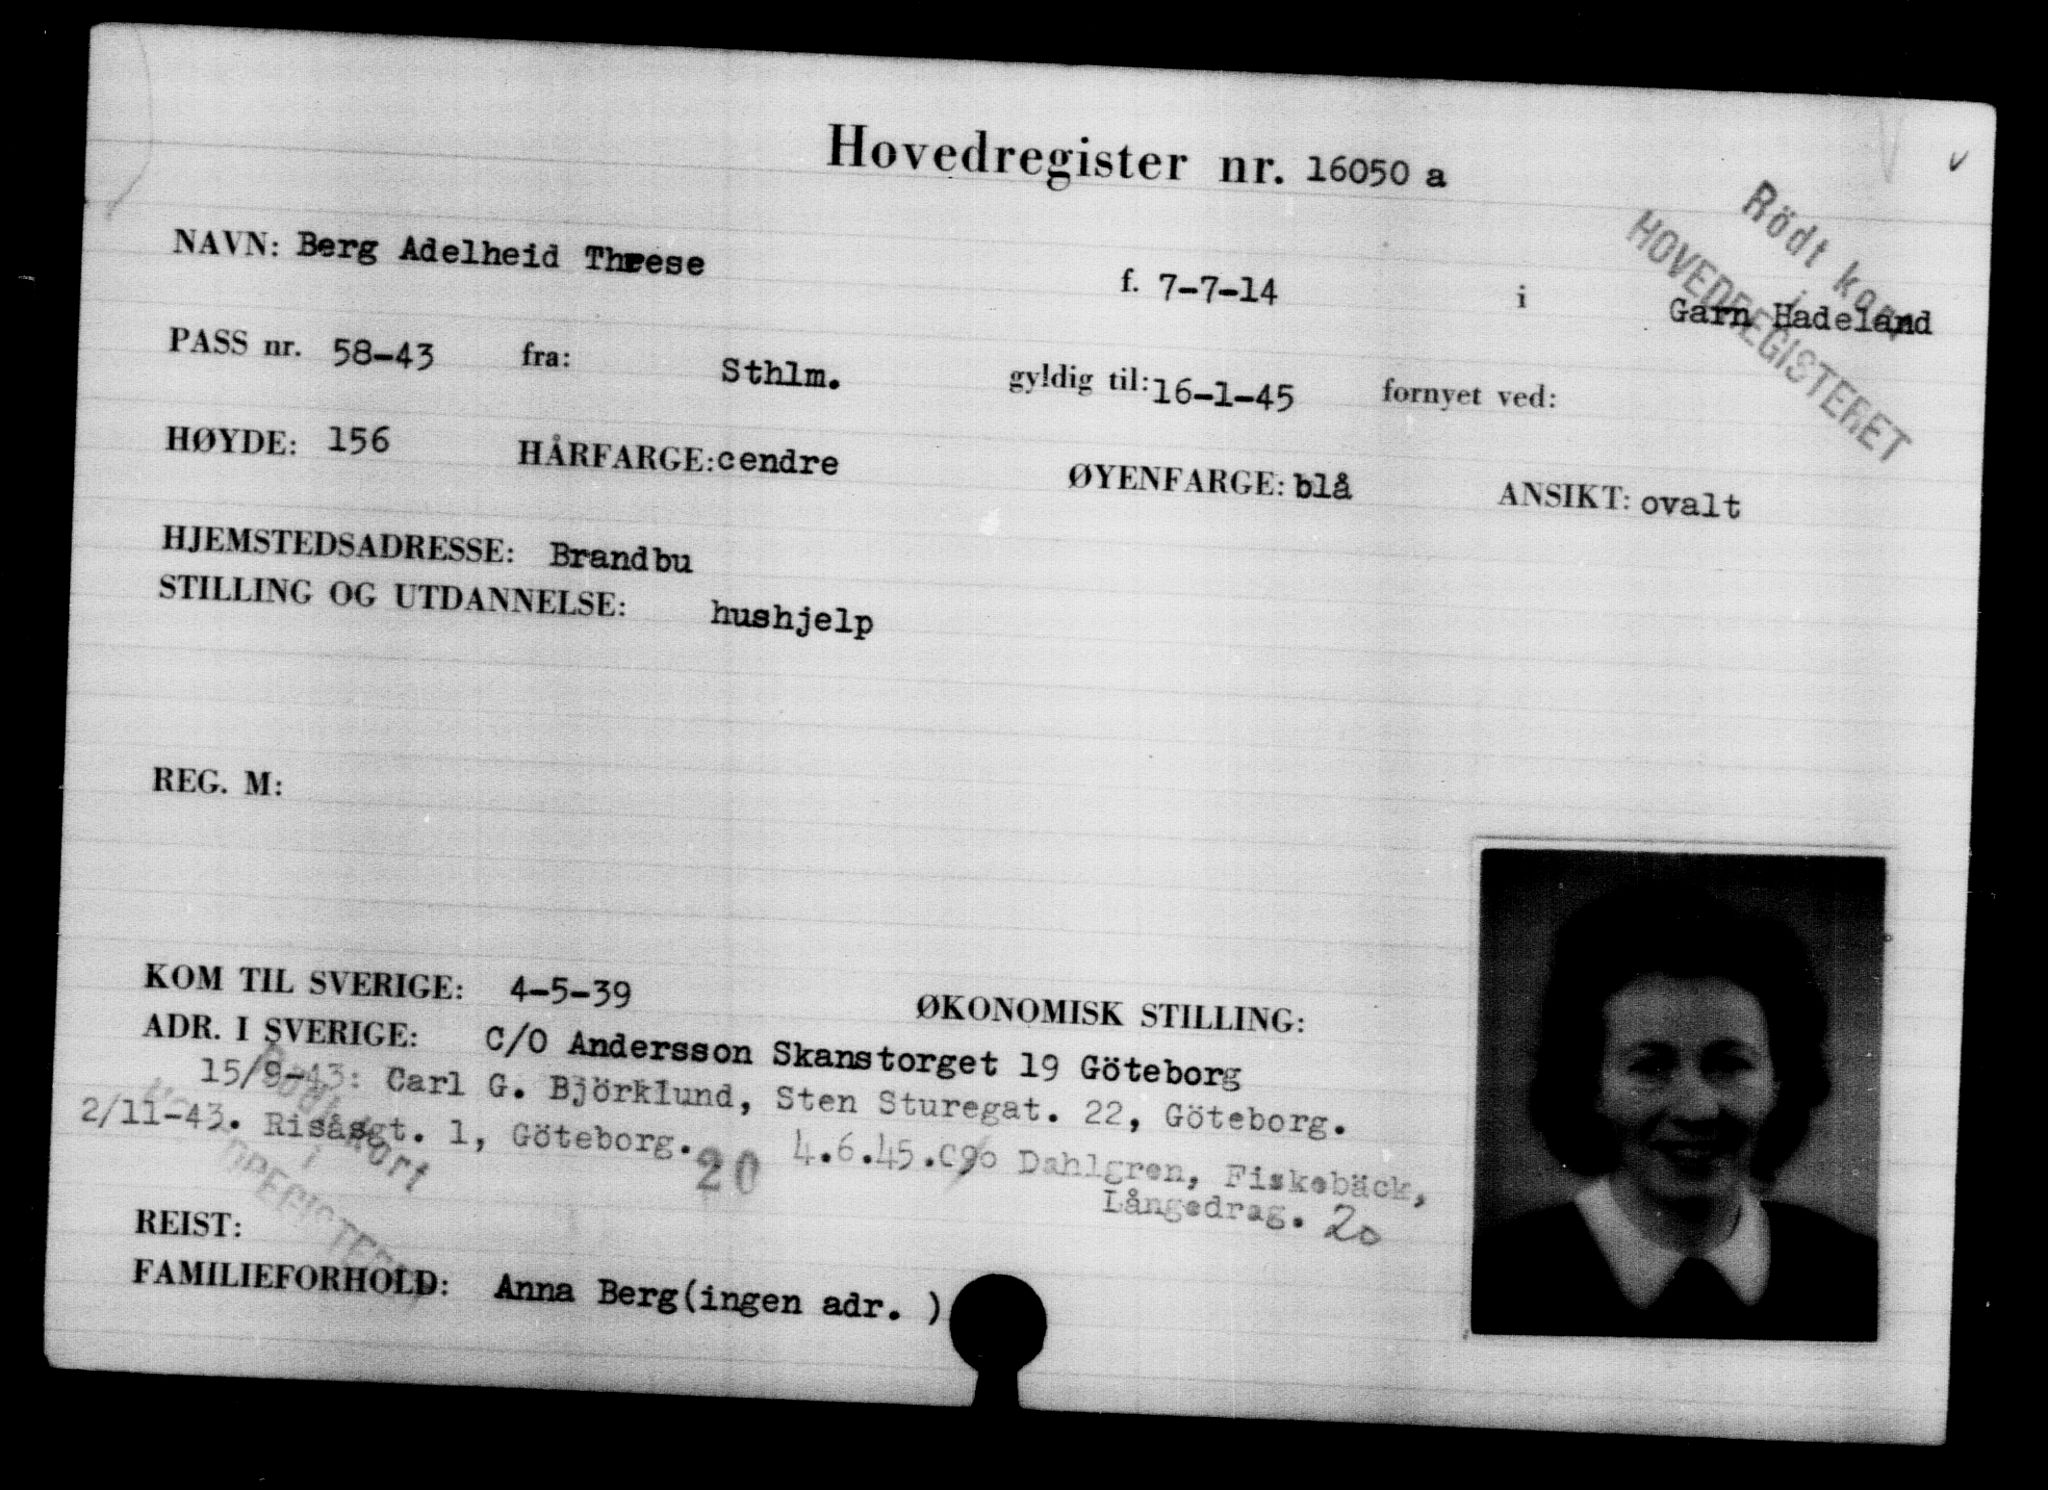 Hovedregister nr. 16050 a
Rödt kort
i
HOVEDREGISTERET
NAVN: Berg Adelheid Threse f. 7-7-14 i Garn Hadeland
PASS nr. 58-43 fra: Sthlm. gyldig til: 16-1-45 fornyet ved:
HØYDE: 156 HÅRFARGE: cendre ØYENFARGE: blå ANSIKT: ovalt
HJEMSTEDSADRESSE: Brandbu
STILLING OG UTDANNELSE: hushjelp
REG. M:
KOM TIL SVERIGE: 4-5-39 ØKONOMISK STILLING:
ADR. I SVERIGE: C/O Andersson Skanstorget 19 Göteborg
15/9-43: Carl G. Björklund, Sten Sturegat. 22, Göteborg.
2/11-43. Risåsgt. 1, Göteborg. 20 4.6.45. c/o Dahlgren, Fiskebäck,
Långedrag. 20
Rödt kort
i
HOVEDREGISTERET
REIST:
FAMILIEFORHOLD: Anna Berg(ingen adr. )